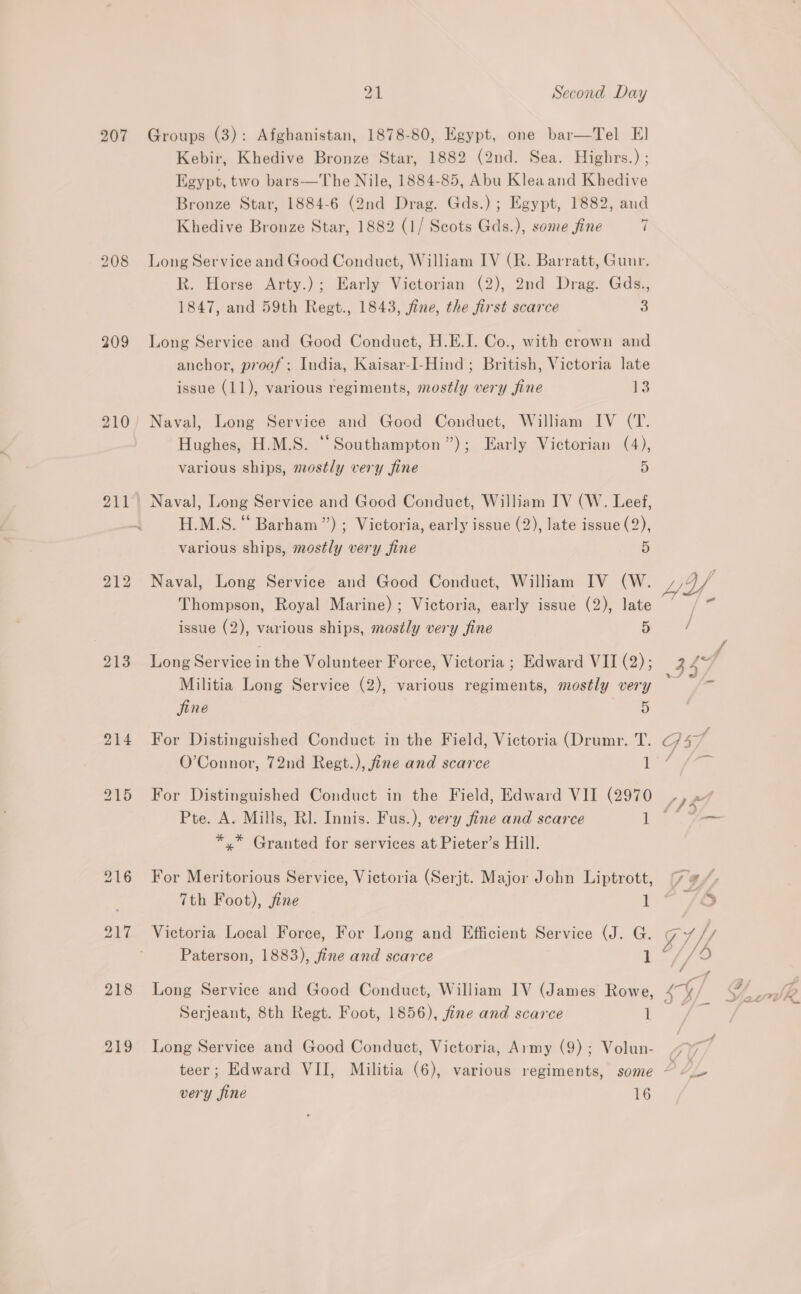 21 Second Day
207 Groups (3): Afghanistan, 1878-80, Egypt, one bar—Tel El
Kebir, Khedive Bronze Star, 1882 (2nd. Sea. Highrs.);
Egypt, two bars—The Nile, 1884-85, Abu Klea and Khedive
Bronze Star, 1884-6 (2nd Drag. Gds.); Egypt, 1882, and
Khedive Bronze Star, 1882 (1/ Scots Gds.), some fine 7
208 Long Service and Good Conduct, William IV (R. Barratt, Gunr.
R. Horse Arty.); Early Victorian (2), 2nd Drag. Gds.,
1847, and 59th Regt., 1843, fine, the first scarce 3
209 Long Service and Good Conduct, H.E.I. Co., with crown and
anchor, proof; India, Kaisar-I-Hind; British, Victoria late
issue (11), various regiments, mostly very fine 13
210 Naval, Long Service and Good Conduct, William IV (T.
Hughes, H.M.S. “Southampton”); Early Victorian (4),
various ships, mostly very fine 5
211 Naval, Long Service and Good Conduct, William IV (W. Leef,
H.M.S. “Barham”); Victoria, early issue (2), late issue (2),
various ships, mostly very fine 5
212 Naval, Long Service and Good Conduct, William IV (W.
Thompson, Royal Marine); Victoria, early issue (2), late
issue (2), various ships, mostly very fine 5
213 Long Service in the Volunteer Force, Victoria; Edward VII (2);
Militia Long Service (2), various regiments, mostly very
fine 5
214 For Distinguished Conduct in the Field, Victoria (Drumr. T.
O’Connor, 72nd Regt.), fine and scarce 1
215 For Distinguished Conduct in the Field, Edward VII (2970
Pte. A. Mills, Rl. Innis. Fus.), very fine and scarce 1
*** Granted for services at Pieter’s Hill.
216 For Meritorious Service, Victoria (Serjt. Major John Liptrott,
7th Foot), fine 1
217 Victoria Local Force, For Long and Efficient Service (J. G.
Paterson, 1883), fine and scarce 1
218 Long Service and Good Conduct, William IV (James Rowe,
Serjeant, 8th Regt. Foot, 1856), fine and scarce 1
219 Long Service and Good Conduct, Victoria, Army (9); Volun-
teer; Edward VII, Militia (6), various regiments, some
very fine 16